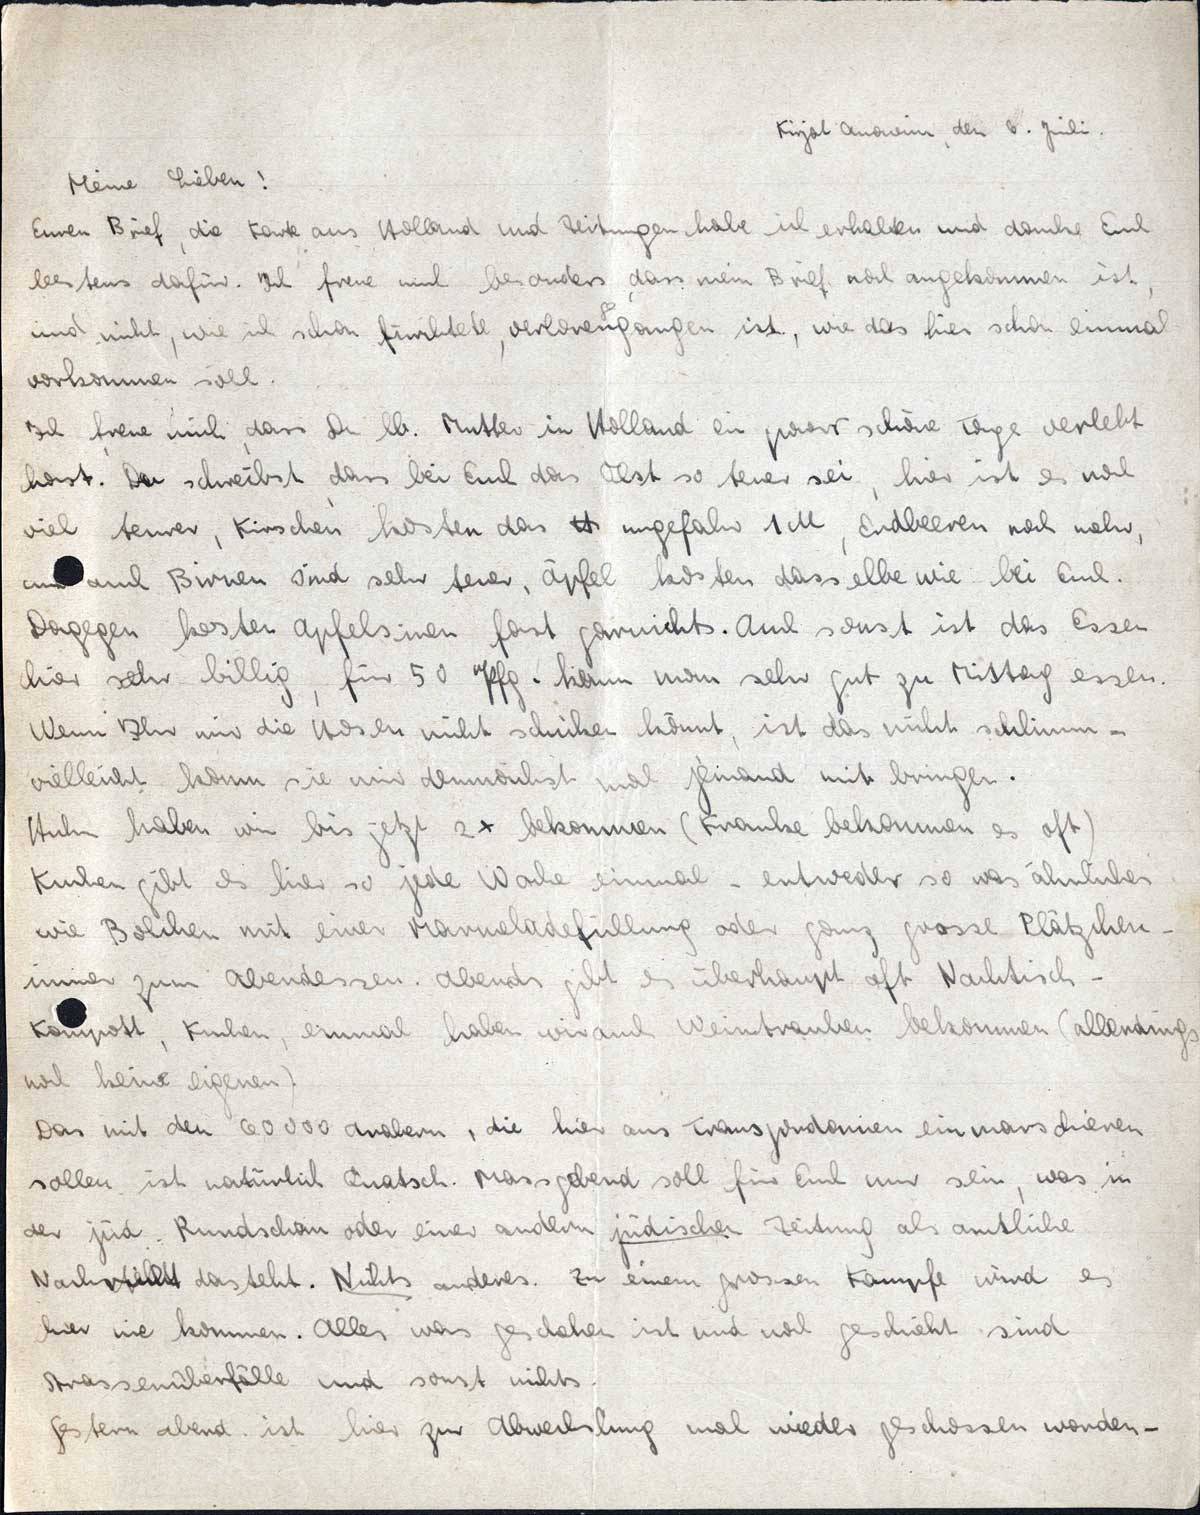 Kirjat Anavim, den 8. Juli.
Meine Lieben!
Euren Brief, die Karte aus Holland und Zeitungen habe ich erhalten und danke Euch
bestens dafür. Ich freue mich besonders, dass mein Brief noch angekommen ist,
und nicht, wie ich schon fürchtete, verlorengegangen ist, wie das hier schon einmal
vorkommen soll.
Ich freue mich, dass Du lb. Mutter in Holland ein paar schöne Tage verlebt
hast. Du schreibst, dass bei Euch das Obst so teuer sei, hier ist es noch
viel teurer, Kirschen kosten das ℔ ungefähr 1 M, Erdbeeren noch mehr,
und auch Birnen sind sehr teuer, Äpfel kosten dasselbe wie bei Euch.
Dagegen kosten Apfelsinen fast garnichts. Auch sonst ist das Essen
hier sehr billig, für 50 Pfg. kann man sehr gut zu Mittag essen.
Wenn Ihr mir die Hosen nicht schicken könnt, ist das nicht schlimm -
vielleicht kann sie mir demnächst mal jemand mit bringen.
Huhn haben wir bis jetzt 2x bekommen (Kranke bekommen es oft)
Kuchen gibt es hier so jede Woche einmal - entweder so was ähnliches
wie Bolchen mit einer Marmeladefüllung oder ganz grosse Plätzchen -
immer zum Abendessen. Abends gibt es überhaupt oft Nachtisch -
Kompott, Kuchen, einmal haben wir auch Weintrauben bekommen (allerdings
noch keine eigenen).
Das mit den 60000 Arabern, die hier aus Transjordanien einmarschieren
sollen ist natürlich Quatsch. Massgebend soll für Euch nur sein, was in
der jüd. Rundschau oder einer andern jüdischen Zeitung als amtliche
Nachricht dasteht. Nichts anderes. Zu einem grossen Kampfe wird es
hier nie kommen. Alles was geschehen ist und noch geschieht sind
Strassenüberfälle und sonst nichts.
Gestern abend ist hier zur Abwechslung mal wieder geschossen worden -